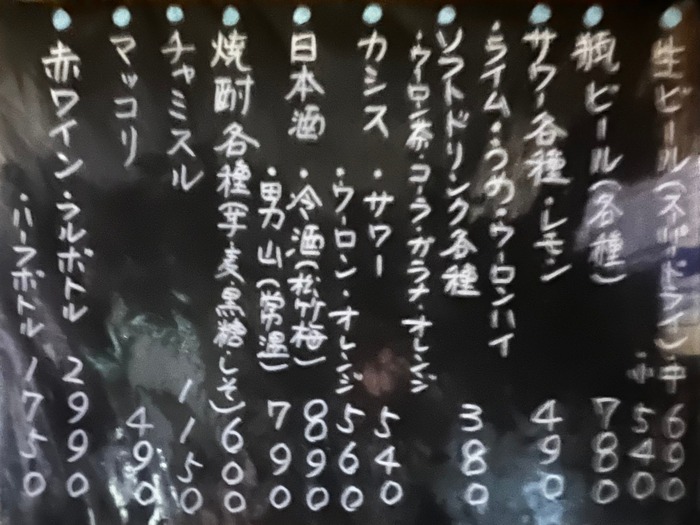 生ビール(スーパードライ)・中 690
・小 540
瓶ビール(各種) 780
サワー各種・レモン 490
・ライム・うめ・ウーロンハイ
ソフトドリンク各種 380
・ウーロン茶・コーラ・ガラナ・オレンジ
カシス・サワー 540
・ウーロン・オレンジ 560
日本酒・冷酒(松竹梅) 890
・男山(常温) 790
焼酎各種(芋・麦・黒糖・しそ) 600
チャミスル 1150
マッコリ 490
赤ワイン・フルボトル 2990
・ハーフボトル 1750